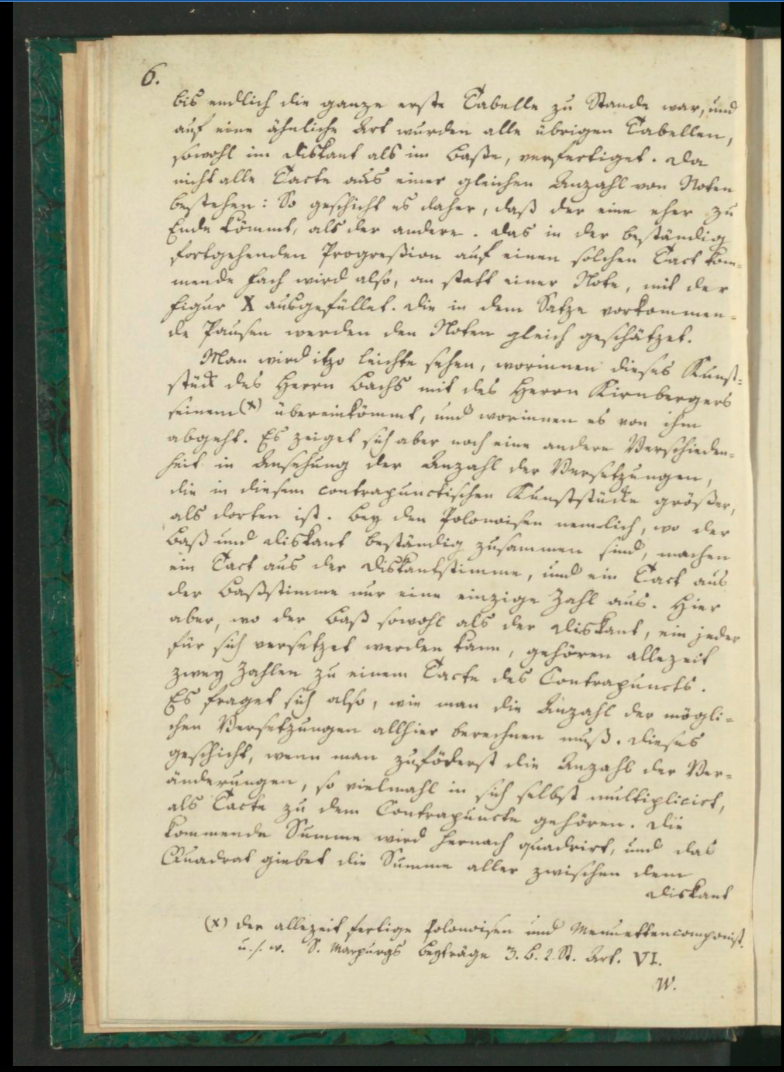 6.
bis endlich die ganze erste Tabelle zu Stande war, und
auf eine ähnliche Art wurden alle übrigen Tabellen,
sowohl im Diskant als im Baße, verfertiget. Da
nicht alle Tacte aus einer gleichen Anzahl von Noten
bestehen: So geschieht es daher, daß der eine eher zu
Ende kömmt, als der andere. Das in der beständig
fortgehenden Progreßion auf einen solchen Tact kom-
mende Fach wird also, an statt einer Note, mit der
Figur X ausgefüllet. Die in dem Satze vorkommen-
de Pausen werden den Noten gleich geschätzet.
Man wird itzo leichte sehen, worinnen dieses Kunst-
stück des Herrn Bachs mit des Herrn Kirnbergers
seinem (X) übereinkömmt, und worinnen es von ihm
abgeht. Es zeiget sich aber noch eine andere Verschieden-
heit in Ansehung der Anzahl der Versetzungen,
die in diesem contrapunctischen Kunststücke größer,
als dorten ist. Bey den Polonoisen nemlich, wo der
Baß und Diskant beständig zusammen sind, machen
ein Tact aus der Diskantstimme, und ein Tact aus
der Baßstimme nur eine einzige Zahl aus. Hier
aber, wo der Baß sowohl als der Diskant, ein jeder
für sich versetzet werden kann, gehören allezeit
zwey Zahlen zu einem Tacte des Contrapuncts.
Es fraget sich also, wie man die Anzahl der mögli-
chen Versetzungen allhier berechnen muß. Dieses
geschicht, wenn man zuförderst die Anzahl der Ver-
änderungen, so vielmahl in sich selbst multiplicirt,
als Tacte zu dem Contrapuncte gehören. Die
kommende Summe wird hernach quadrirt, und das
Quadrat giebet die Summe aller zwischen dem
Diskant
(X) der allezeit fertige Polonoisen und Menuettencomponist.
u. s. w. S. Marpurgs Beyträge 3. B. 2. St. Art. VI.
W.